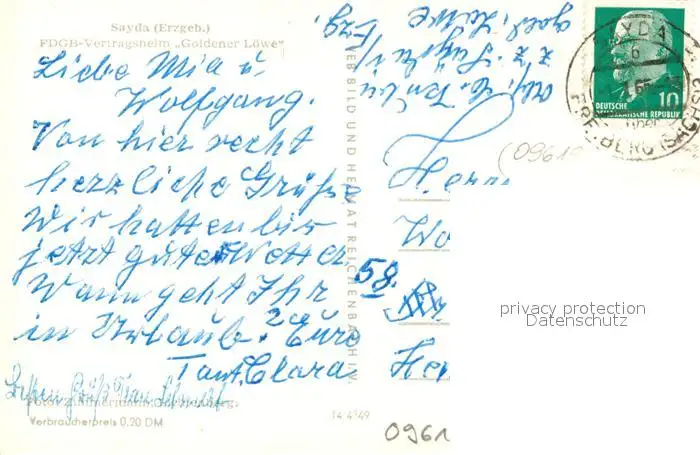 Sayda (Erzgeb.)
FDGB-Vertragsheim „Goldener Löwe"
Liebe Mia u.
Wolfgang.
Von hier recht
herzliche Grüße
Wir hatten bis
jetzt gutes Wetter.
Wann geht Ihr
in Urlaub? Eure
Tante Clara
Verbraucherpreis 0,20 DM
14 4149
BILD UND HEIMAT REICHENBACH I.V.
z. Z. Sayda i/
Erzg.
Herrn
Wo
58.
Her
0961
(0961
DEUTSCHE
DEMOKRATISCHE REPUBLIK
10
SAYDA
über
FREIBERG (SACHS)
privacy protection
Datenschutz